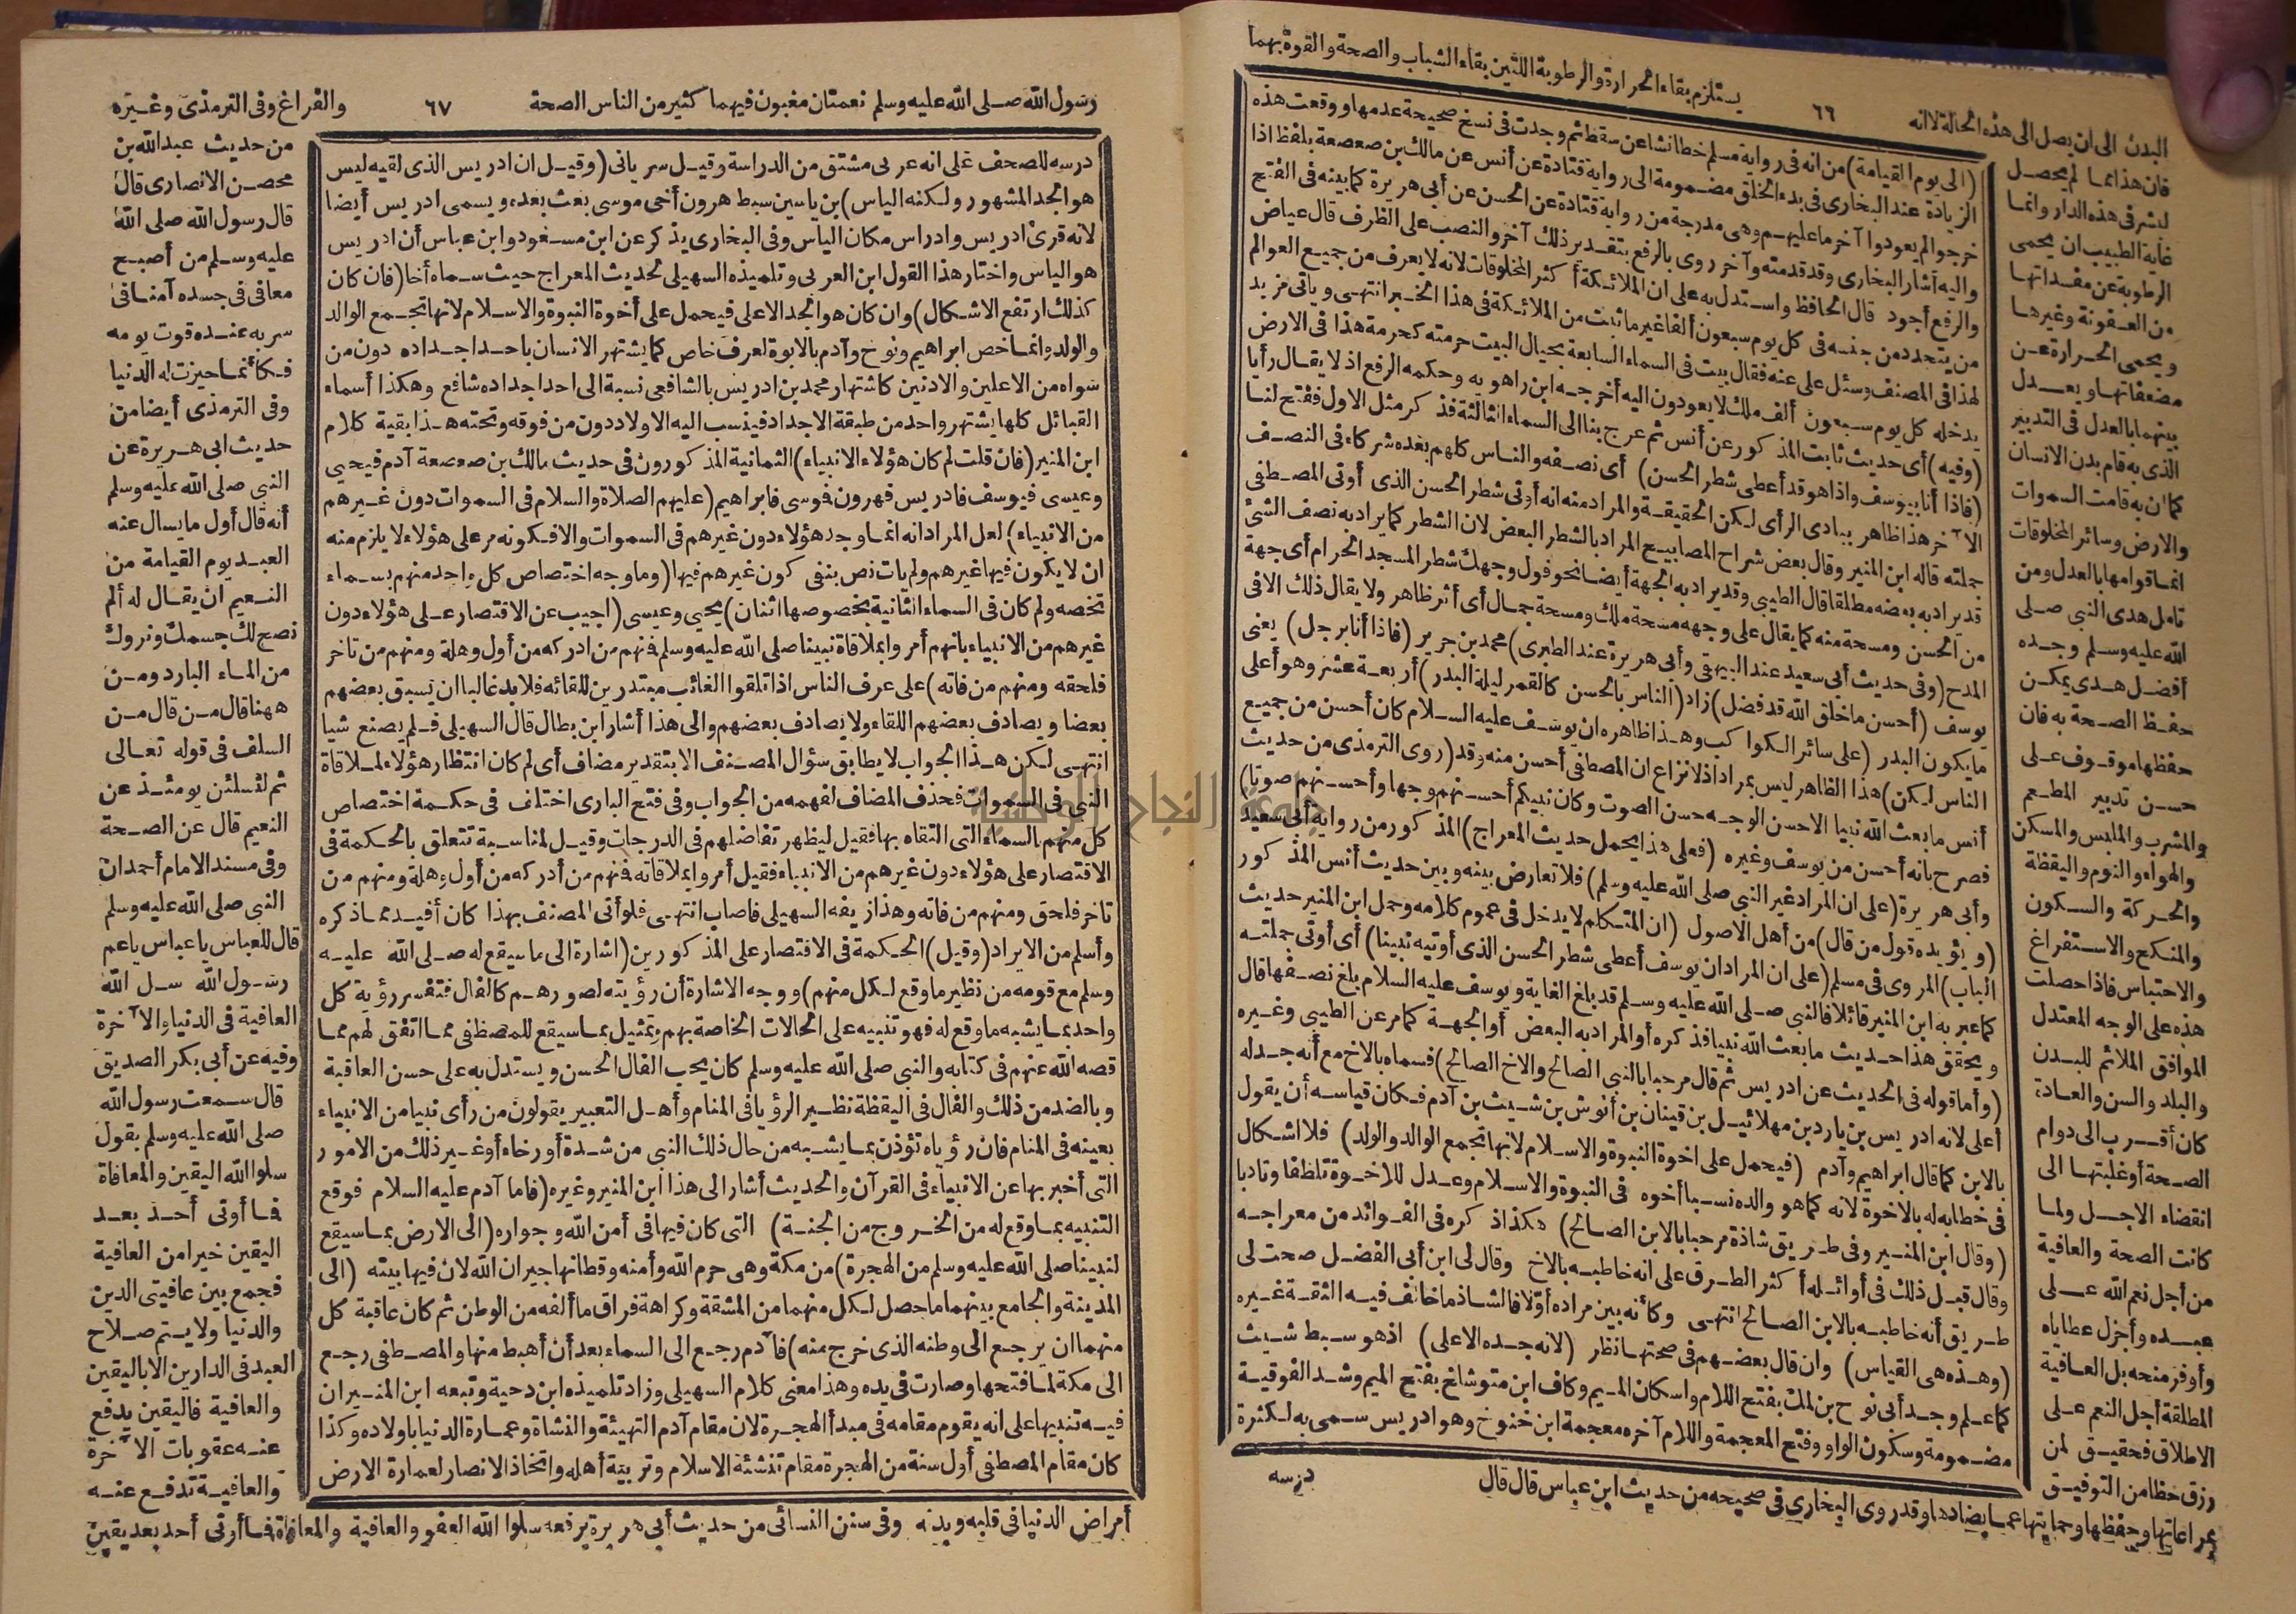 يستلزم بقاء الحرارة والرطوبة اللتين بقاء الشباب والصحة والقوة بهما
٦٦
البدن الى ان يصل الى هذه الحالة لانه
فان هذا مما لم يحصل
لبشر فى هذه الدار وانما
غاية الطبيب ان يحمى
الرطوبة عن مفسداتها
من العفونة وغيرها
ويحمى الحرارة عن
مضعفاتها ويعدل
بينهما بالعدل فى التدبير
الذى به قام بدن الانسان
كما ان به قامت السموات
والارض وسائر المخلوقات
انما قوامها بالعدل ومن
تامل هدى النبى صلى
الله عليه وسلم وجده
أفضل هدى يمكن
حفظ الصحة به فان
حفظها موقوف على
حسن تدبير المطعم
والمشرب والملبس والمسكن
والهواء والنوم واليقظة
والحركة والسكون
والمنكح والاستفراغ
والاحتباس فاذا حصلت
هذه على الوجه المعتدل
الموافق الملائم للبدن
والبلد والسن والعادة
كان أقرب الى دوام
الصحة أو غلبتها الى
انقضاء الاجل ولما
كانت الصحة والعافية
من أجل نعم الله على
عبده وأجزل عطاياه
وأوفر منحه بل العافية
المطلقة أجل النعم على
الاطلاق فحقيق لمن
رزق حظا من التوفيق
مراعاتها وحفظها وحمايتها عما يضادها وقد روى البخارى فى صحيحه من حديث ابن عباس قال قال
(الى يوم القيامة) من انه فى رواية مسلم خطا نشا عن سقط ثم وجدت فى نسخ صحيحة عدمها ووقعت هذه
الزيادة عند البخارى فى بدء الخلق مضمومة الى رواية قتادة عن أنس عن مالك بن صعصعة بلفظ اذا
خرجوا لم يعودوا آخر ما عليهم وهى مدرجة من رواية قتادة عن الحسن عن أبى هريرة كما بينه فى الفتح
واليه أشار البخارى وقد قدمته وآخر روى بالرفع بتقدير ذلك آخر والنصب على الظرف قال عياض
والرفع أجود قال الحافظ واستدل به على ان الملائكة أكثر المخلوقات لانه لا يعرف من جميع العوالم
من يتجدد من جنسه فى كل يوم سبعون ألفا غير ما ثبت من الملائكة فى هذا الخبر انتهى وياتى مزيد
لهذا فى المصنف وسئل على عنه فقال بيت فى السماء السابعة بحيال البيت حرمته كحرمة هذا فى الارض
يدخله كل يوم سبعون ألف ملك لا يعودون اليه أخرجه ابن راهويه وحكمه الرفع اذ لا يقال رأيا
(وفيه) أى حديث ثابت المذكور عن أنس ثم عرج بنا الى السماء الثالثة فذكر مثل الاول ففتح لنا
(فاذا أنا بيوسف واذا هو قد أعطى شطر الحسن) أى نصفه والناس كلهم بعده شركاء فى النصف
الآخر هذا ظاهر ببادى الرأى لكن الحقيقة والمراد منه انه أوتى شطر الحسن الذى أوتى المصطفى
جملته قاله ابن المنير وقال بعض شراح المصابيح المراد بالشطر البعض لان الشطر كما يراد به نصف الشئ
قد يراد به بعضه مطلقا قال الطيبى وقد يراد به الجهة أيضا نحو فول وجهك شطر المسجد الحرام أى جهة
من الحسن ومسحة منه كما يقال على وجهه مسحة ملك ومسحة جمال أى أثر ظاهر ولا يقال ذلك الا فى
المدح (وفى حديث أبى سعيد عند البيهقى وأبى هريرة عند الطبرى) محمد بن جرير (فاذا أنا برجل) يعنى
يوسف (أحسن ما خلق الله قد فضل) زاد (الناس بالحسن كالقمر ليلة البدر) أربعة عشر وهو أعلى
ما يكون البدر (على سائر الكواكب وهذا ظاهره ان يوسف عليه السلام كان أحسن من جميع
الناس لكن) هذا الظاهر ليس بمراد اذ لا نزاع ان المصطفى أحسن منه وقد (روى الترمذى من حديث
أنس ما بعث الله نبيا الا حسن الوجه حسن الصوت وكان نبيكم أحسنهم وجها وأحسنهم صوتا)
فصرح بانه أحسن من يوسف وغيره (فعلى هذا يحمل حديث المعراج) المذكور من رواية أبى سعيد
وأبى هريرة (على ان المراد غير النبى صلى الله عليه وسلم) فلا تعارض بينه وبين حديث أنس المذكور
(ويؤيده قول من قال) من أهل الاصول (ان المتكلم لا يدخل فى عموم كلامه وحمل ابن المنير حديث
الباب) المروى فى مسلم (على ان المراد ان يوسف أعطى شطر الحسن الذى أوتيه نبينا) أى أوتى جملته
كما عبر به ابن المنير قائلا فالنبى صلى الله عليه وسلم قد بلغ الغاية ويوسف عليه السلام بلغ نصفها قال
ويحقق هذا حديث ما بعث الله نبيا فذكره أو المراد به البعض أو الجهة كما مر عن الطيبى وغيره
(وأما قوله فى الحديث عن ادريس ثم قال مرحبا بالنبى الصالح والاخ الصالح) فسماه بالاخ مع أنه جد له
أعلى لانه ادريس بن يارد بن مهلائيل بن قينان بن أنوش بن شيث بن آدم فكان قياسه أن يقول
بالابن كما قال ابراهيم وآدم (فيحمل على اخوة النبوة والاسلام لانها تجمع الوالد والولد) فلا اشكال
فى خطابه له بالاخوة لانه كما هو والده نسبا أخوه فى النبوة والاسلام وعدل للاخوة تلطفا وتادبا
(وقال ابن المنير وفى طريق شاذة مرحبا بالابن الصالح) هكذا ذكره فى الفوائد من معراجه
وقال قبل ذلك فى أوائله أكثر الطرق على انه خاطبه بالاخ وقال لى ابن أبى الفضل صحت لى
طريق أنه خاطبه بالابن الصالح انتهى وكأنه بين مراده أولا فالشاذ ما خالف فيه الثقة غيره
(وهذه هى القياس) وان قال بعضهم فى صحتها نظر (لانه جده الاعلى) اذ هو سبط شيث
كما علم وجد أبى نوح بن لمك بفتح اللام واسكان الميم وكاف ابن متوشلخ بفتح الميم وشد الفوقية
مضمومة وسكون الواو وفتح المعجمة واللام آخره معجمة ابن خنوخ وهو ادريس سمى به لكثرة
درسه
رسول الله صلى الله عليه وسلم نعمتان مغبون فيهما كثير من الناس الصحة
٦٧
والفراغ وفى الترمذى وغيره
من حديث عبد الله بن
محصن الانصارى قال
قال رسول الله صلى الله
عليه وسلم من أصبح
معافى فى جسده آمنا فى
سربه عنده قوت يومه
فكأنما حيزت له الدنيا
وفى الترمذى أيضا من
حديث ابى هريرة عن
النبى صلى الله عليه وسلم
أنه قال أول ما يسال عنه
العبد يوم القيامة من
النعيم ان يقال له ألم
نصح لك جسمك ونروك
من الماء البارد ومن
ههنا قال من قال من
السلف فى قوله تعالى
ثم لتسئلن يومئذ عن
النعيم قال عن الصحة
وفى مسند الامام أحمد ان
النبى صلى الله عليه وسلم
قال للعباس يا عباس يا عم
رسول الله سل الله
العافية فى الدنيا والآخرة
وفيه عن أبى بكر الصديق
قال سمعت رسول الله
صلى الله عليه وسلم يقول
سلوا الله اليقين والمعافاة
فما أوتى أحد بعد
اليقين خيرا من العافية
فجمع بين عافيتى الدين
والدنيا ولا يتم صلاح
العبد فى الدارين الا باليقين
والعافية فاليقين يدفع
عنه عقوبات الآخرة
والعافية تدفع عنه
أمراض الدنيا فى قلبه وبدنه وفى سنن النسائى من حديث أبى هريرة يرفعه سلوا الله العفو والعافية والمعافاة فما أوتى أحد بعد يقين
درسه للصحف على انه عربى مشتق من الدراسة وقيل سريانى (وقيل ان ادريس الذى لقيه ليس
هو الجد المشهور ولكنه الياس) بن ياسين سبط هرون أخى موسى بعث بعده ويسمى ادريس أيضا
لانه قرئ ادريس وادراس مكان الياس وفى البخارى يذكر عن ابن مسعود وابن عباس أن ادريس
هو الياس واختار هذا القول ابن العربى وتلميذه السهيلى لحديث المعراج حيث سماه أخا (فان كان
كذلك ارتفع الاشكال) وان كان هو الجد الاعلى فيحمل على أخوة النبوة والاسلام لانها تجمع الوالد
والولد وانما خص ابراهيم ونوح وآدم بالابوة لعرف خاص كما يشتهر الانسان باحد اجداده دون من
سواه من الاعلين والادنين كاشتهار محمد بن ادريس بالشافعى نسبة الى احد اجداده شافع وهكذا أسماء
القبائل كلها يشتهر واحد من طبقة الاجداد فينسب اليه الاولاد دون من فوقه وتحته هذا بقية كلام
ابن المنير (فان قلت لم كان هؤلاء الانبياء) الثمانية المذكورون فى حديث مالك بن صعصعة آدم فيحيى
وعيسى فيوسف فادريس فهرون فموسى فابراهيم (عليهم الصلاة والسلام فى السموات دون غيرهم
من الانبياء) لعل المراد انه انما وجد هؤلاء دون غيرهم فى السموات والا فكونه مر على هؤلاء لا يلزم منه
ان لا يكون فيها غيرهم ولم يات نص بنفى كون غيرهم فيها (وما وجه اختصاص كل واحد منهم بسماء
تخصه ولم كان فى السماء الثانية بخصوصها اثنان) يحيى وعيسى (اجيب عن الاقتصار على هؤلاء دون
غيرهم من الانبياء بانهم أمروا بملاقاة نبينا صلى الله عليه وسلم فمنهم من ادركه من أول وهلة ومنهم من تاخر
فلحقه ومنهم من فاته) على عرف الناس اذا تلقوا الغائب مبتدرين للقائه فلا بد غالبا ان يسبق بعضهم
بعضا ويصادف بعضهم اللقاء ولا يصادف بعضهم والى هذا أشار ابن بطال قال السهيلى فلم يصنع شيا
انتهى لكن هذا الجواب لا يطابق سؤال المصنف الا بتقدير مضاف أى لم كان انتظار هؤلاء لملاقاة
النبى فى السموات فحذف المضاف لفهمه من الجواب وفى فتح البارى اختلف فى حكمة اختصاص
كل منهم بالسماء التى التقاه بها فقيل ليظهر تفاضلهم فى الدرجات وقيل لمناسبة تتعلق بالحكمة فى
الاقتصار على هؤلاء دون غيرهم من الانبياء فقيل أمروا بملاقاته فمنهم من أدركه من أول وهلة ومنهم من
تاخر فلحق ومنهم من فاته وهذا زيفه السهيلى فاصاب انتهى فلو أتى المصنف بهذا كان أفيد مما ذكره
وأسلم من الايراد (وقيل) الحكمة فى الاقتصار على المذكورين (اشارة الى ما سيقع له صلى الله عليه
وسلم مع قومه من نظير ما وقع لكل منهم) ووجه الاشارة أن رؤيته لصورهم كالفال فتفسر رؤية كل
واحد بما يشبه ما وقع له فهو تنبيه على الحالات الخاصة بهم وتمثيل بما سيقع للمصطفى مما اتفق لهم مما
قصه الله عنهم فى كتابه والنبى صلى الله عليه وسلم كان يحب الفال الحسن ويستدل به على حسن العاقبة
وبالضد من ذلك والفال فى اليقظة نظير الرؤيا فى المنام وأهل التعبير يقولون من رأى نبيا من الانبياء
بعينه فى المنام فان رؤياه تؤذن بما يشبه من حال ذلك النبى من شدة أو رخاء أو غير ذلك من الامور
التى أخبر بها عن الانبياء فى القرآن والحديث أشار الى هذا ابن المنير وغيره (فاما آدم عليه السلام فوقع
التنبيه بما وقع له من الخروج من الجنة) التى كان فيها فى أمن الله وجواره (الى الارض بما سيقع
لنبينا صلى الله عليه وسلم من الهجرة) من مكة وهى حرم الله وأمنه وقطانها جيران الله لان فيها بيته (الى
المدينة والجامع بينهما ما حصل لكل منهما من المشقة وكراهة فراق ما ألفه من الوطن ثم كان عاقبة كل
منهما ان يرجع الى وطنه الذى خرج منه) فآدم رجع الى السماء بعد أن أهبط منها والمصطفى رجع
الى مكة لما فتحها وصارت فى يده وهذا معنى كلام السهيلى وزاد تلميذه ابن دحية وتبعه ابن المنير ان
فيه تنبيها على انه يقوم مقامه فى مبدأ الهجرة لان مقام آدم التهيئة والنشاة وعمارة الدنيا باولاده وكذا
كان مقام المصطفى أول سنة من الهجرة مقام تنشئة الاسلام وتربية أهله واتخاذ الانصار لعمارة الارض
جامعة النجاح الوطنية